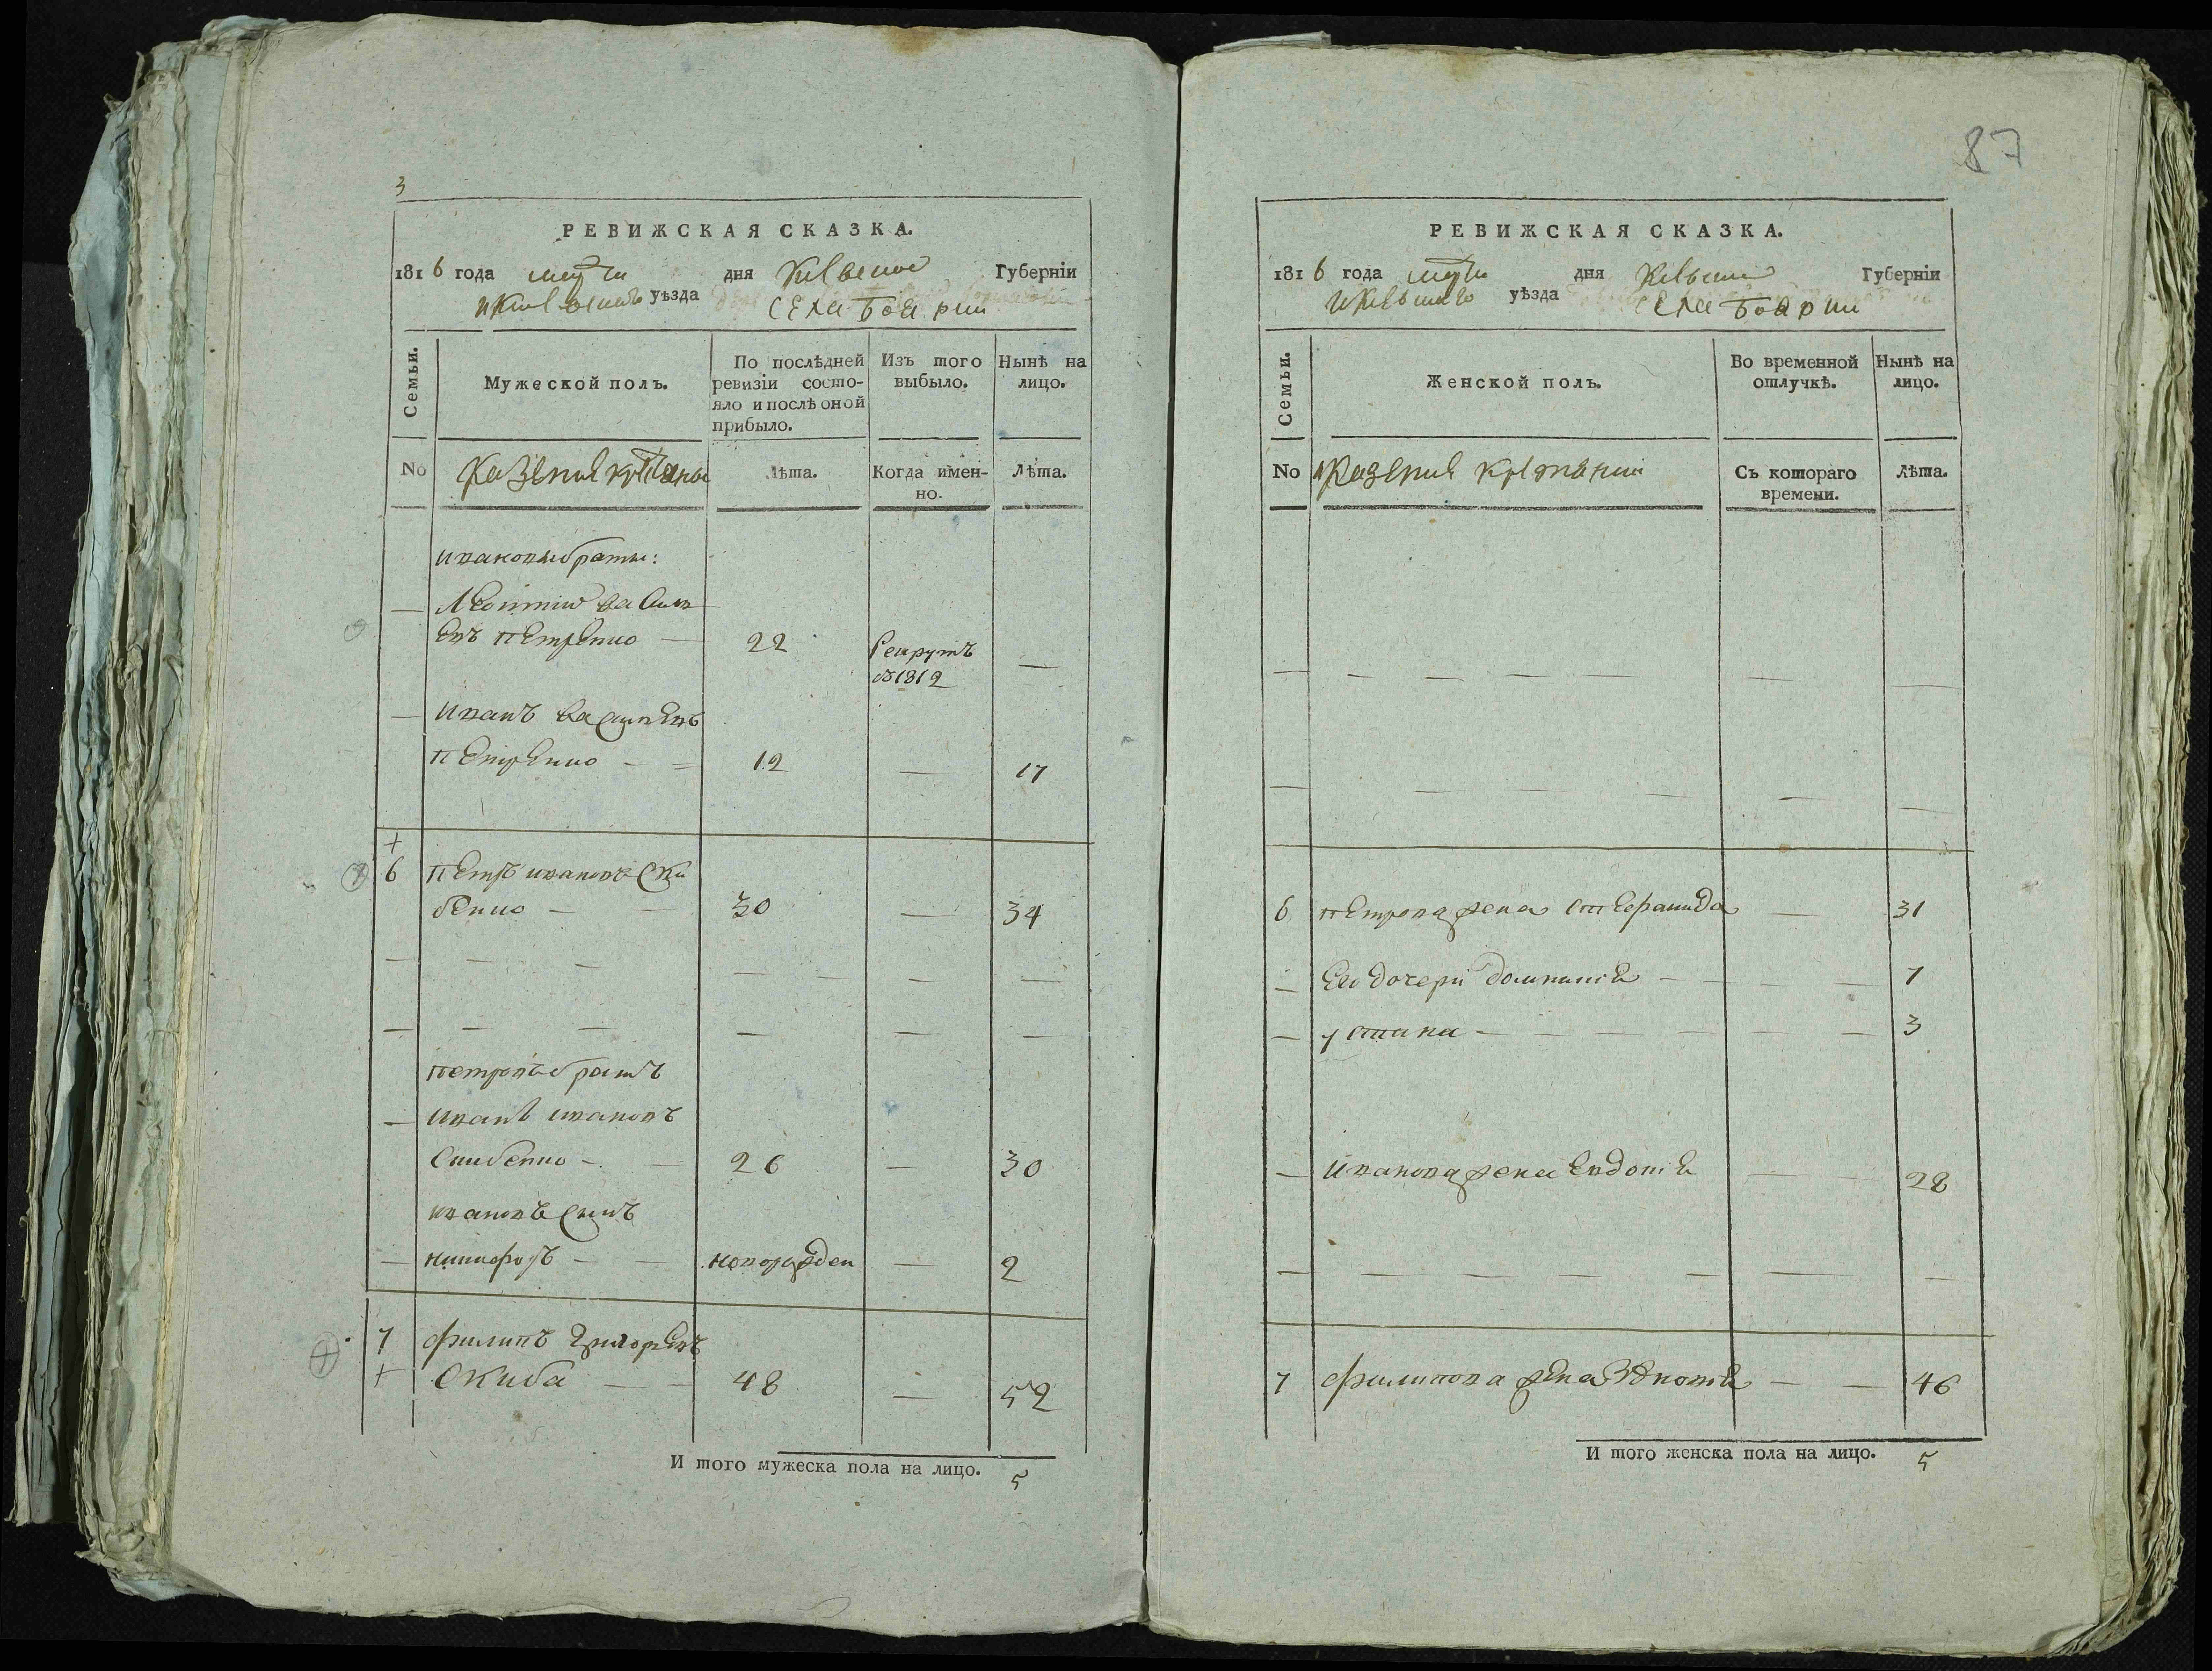 3
РЕВИЖСКАЯ СКАЗКА.
1816 года марта дня Киевской Губерніи
и Киевскаго уѣзда села Боярки
Семьи.
Мужеской полъ.
По послѣдней ревизіи состо-
яло и послѣ оной
прибыло.
Изъ того
выбыло.
Нынѣ на
лицо.
No
Казенние крестяне
Лѣта.
Когда имен-
но.
Лѣта.
Иваковы браты:
— Леонтий Васил
евъ Петренко — 22 Рекрутъ —
в 1812
— Иванъ Василевъ
Петренко — = 12 — 17
+
6 Петръ Ивановъ Ски
бенко — — 30 — 34
Петровъ братъ
— Иванъ Ивановъ
Скибенко — — 26 — 30
Ивановъ сынъ
— Никифоръ — — новорожден — 2
7 Филипъ Григориевъ
+ Скиба — — 48 — 52
И того мужеска пола на лицо. 5
87
РЕВИЖСКАЯ СКАЗКА.
1816 года марта дня Киевской Губерніи
и Киевскаго уѣзда села Боярки
Семьи.
Женской полъ.
Во временной
отлучкѣ.
Нынѣ на
лицо.
No
Казенние крестяни
Съ котораго
времени.
Лѣта.
6 Петрова жена — 31
Ее дочери Домникия — — — — 7
— Устина — — — — — — 3
— Иванова жена Евдокия — — 28
7 Филипова жена — — 46
И того женска пола на лицо. 5